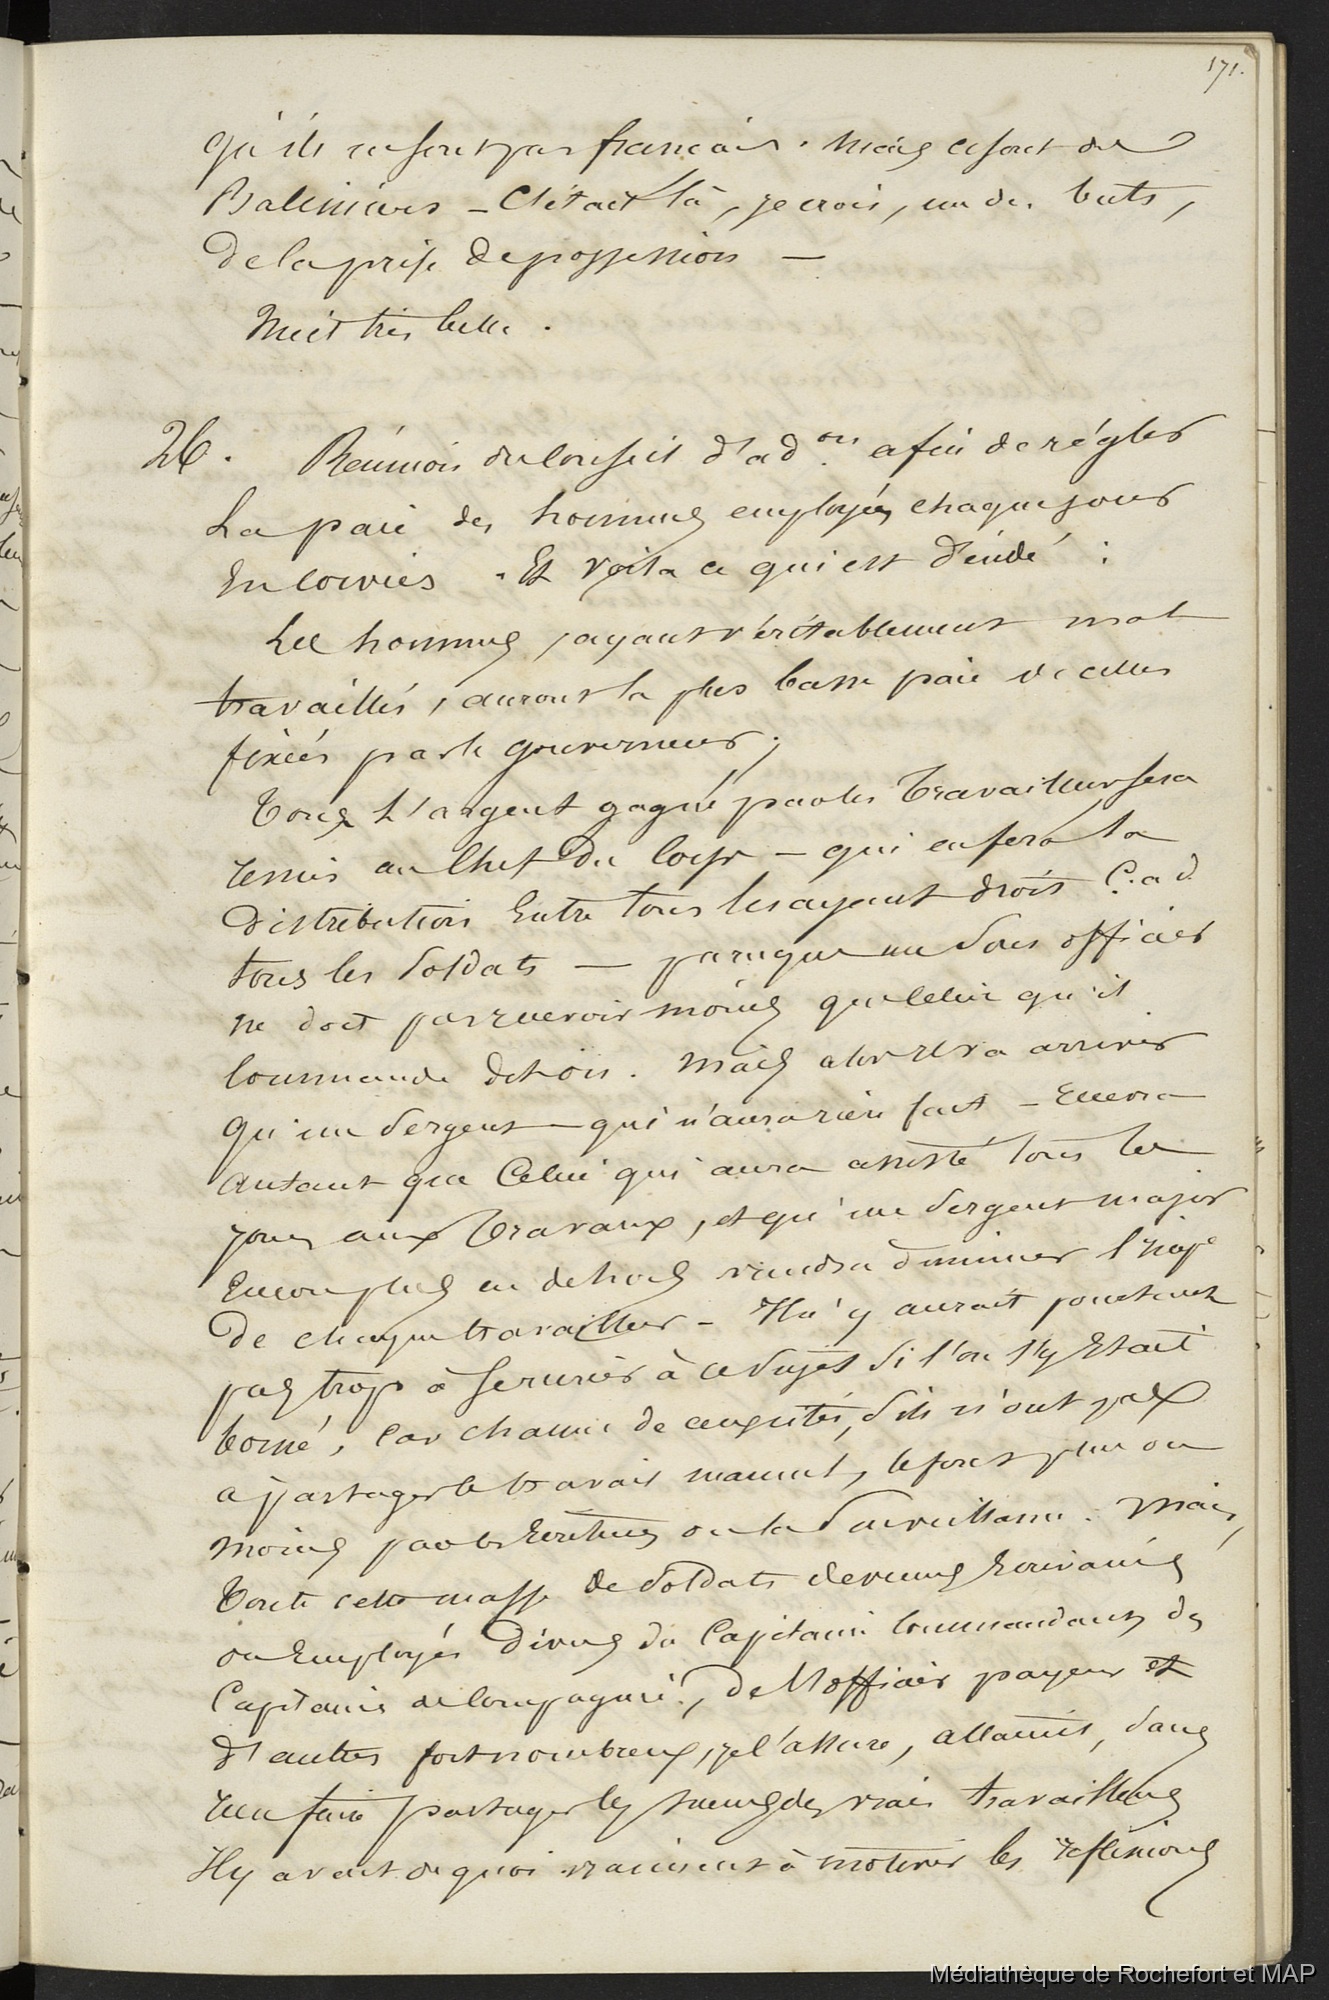 171.
qu'ils ne sont pas français. Mais ce sont des
Baleiniers – C'était là, je crois, un des buts,
De la prise de possession —
Nuit très belle.
26. Réunion du Conseil d'adon. afin de régler
La paie des hommes employés chaque jour
En corvées. Et voilà ce qui est décidé :
Les hommes, ayant véritablement mal
travaillés, auront la plus basse paie de celles
fixées par le gouverneur ;
Tous L'argent gagné par les Travailleurs sera
remis au Chef Du Corps – qui en fera la
Distribution Entre tous les ayant droits C.a d.
tous les Soldats — parceque un Sous officier
ne doit pas recevoir moins que Celui qu'il
Commande dehors. Mais alors il va arriver
qu'un Sergent – qui n'aura rien fait – recevra
Autant que Celui qui aura assisté tous les
jours aux Travaux, et qu'un Sergent major
Encore plus en dehors viendra diminuer
De chaque travailleur – Il n'y aurait pourtant
pas trop à se récrier à ce sujet Si l'on s'y Etait
borné, Car chacun de ces gens, s'ils n'ont pas
à partager le travail manuel, le font plus ou
moins par les Ecritures ou la Surveillance. Mais,
Toute cette masse de Soldats devenus Ecrivains
ou Employés Divers du Capitaine Commandant, des
Capitaines de Compagnie, De l'officier payeur et
d'autres fort nombreux, je l'assure, allaient, sans
rien faire partager les sueurs des vrais travailleurs
Il y avait de quoi vraiment à motiver les reflexions
Médiathèque de Rochefort et MAP